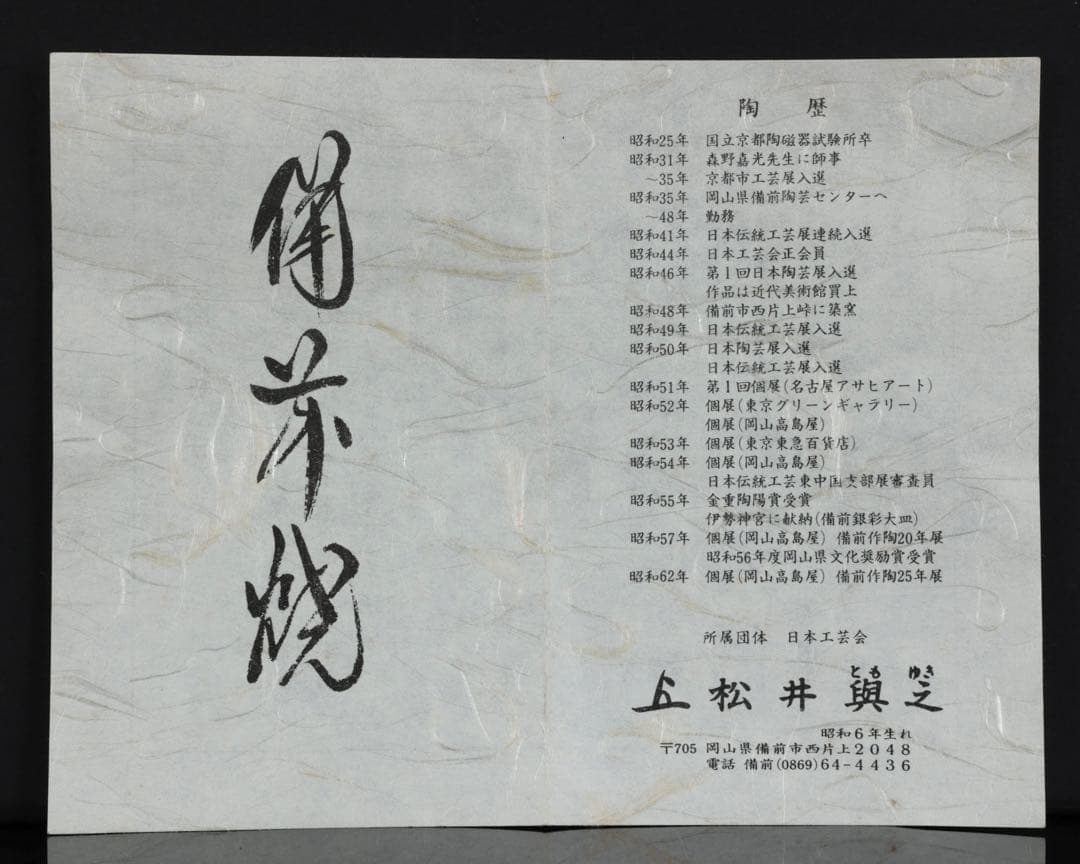 備前焼
陶 歴
昭和25年 国立京都陶磁器試験所卒
昭和31年 森野嘉光先生に師事
〜35年 京都市工芸展入選
昭和35年 岡山県備前陶芸センターへ
〜48年 勤務
昭和41年 日本伝統工芸展連続入選
昭和44年 日本工芸会正会員
昭和46年 第1回日本陶芸展入選
作品は近代美術館買上
昭和48年 備前市西片上峠に築窯
昭和49年 日本伝統工芸展入選
昭和50年 日本陶芸展入選
日本伝統工芸展入選
昭和51年 第1回個展(名古屋アサヒアート)
昭和52年 個展(東京グリーンギャラリー)
個展(岡山高島屋)
昭和53年 個展(東京東急百貨店)
昭和54年 個展(岡山高島屋)
日本伝統工芸東中国支部展審査員
昭和55年 金重陶陽賞受賞
伊勢神宮に献納(備前銀彩大皿)
昭和57年 個展(岡山高島屋) 備前作陶20年展
昭和56年度岡山県文化奨励賞受賞
昭和62年 個展(岡山高島屋) 備前作陶25年展
所属団体 日本工芸会
とも ゆき
松井與之
昭和6年生れ
〒705 岡山県備前市西片上2048
電話 備前(0869)64-4436